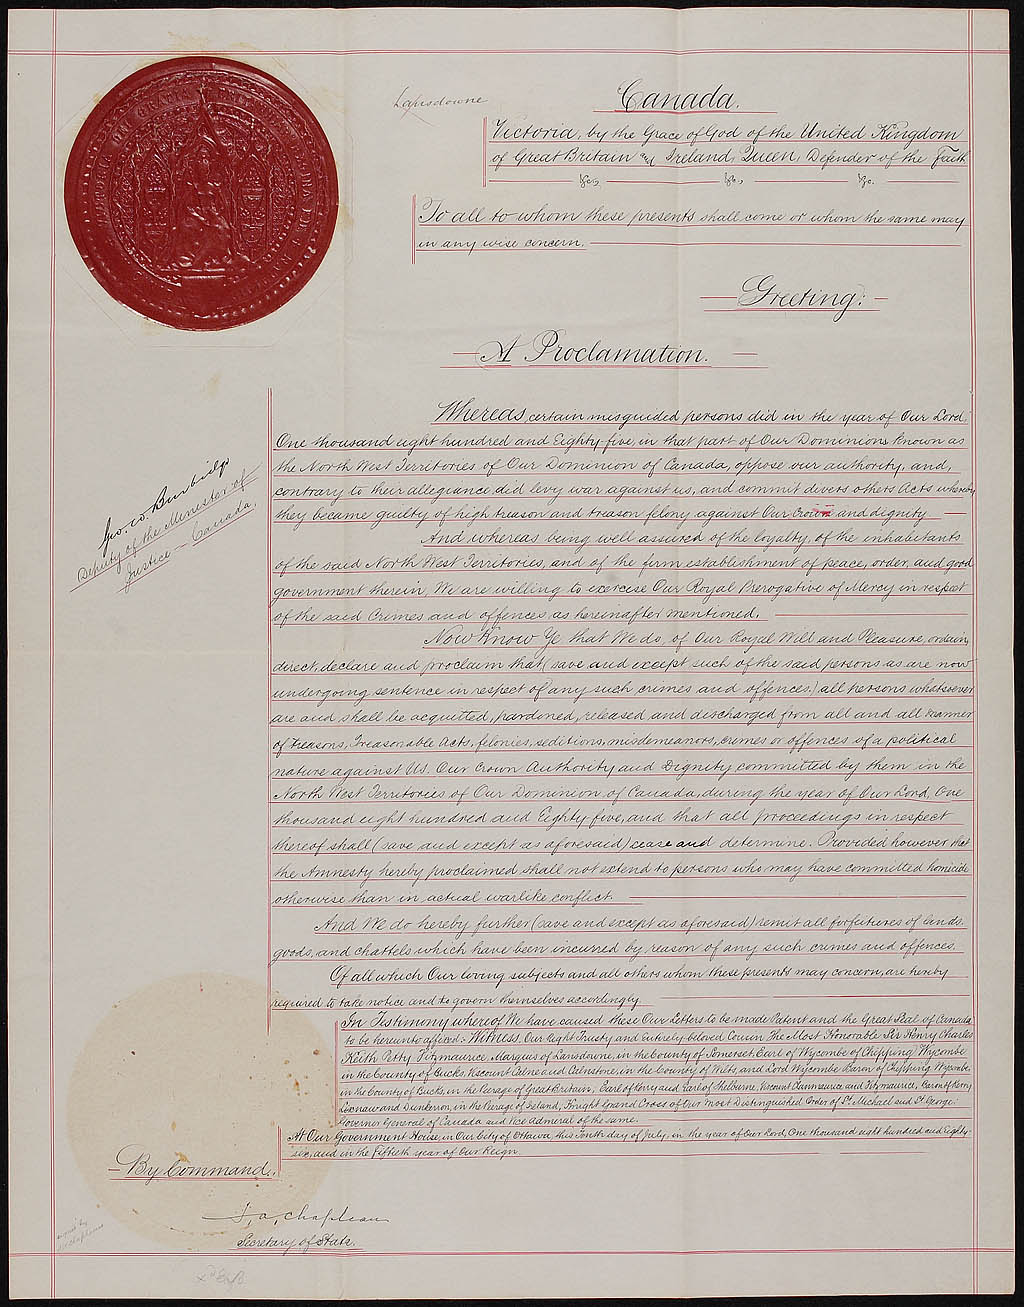 Lansdowne
Canada.
Victoria, by the Grace of God of the United Kingdom
of Great Britain and Ireland, Queen, Defender of the Faith
&c., &c., &c.
To all to whom these presents shall come or whom the same may
in any wise concern.
Greeting:
A Proclamation.
Whereas, certain misguided persons did in the year of Our Lord
One thousand eight hundred and Eighty five, in that part of Our Dominions known as
the North West Territories of Our Dominion of Canada, oppose our authority, and,
contrary to their allegiance, did levy war against us, and commit divers others Acts whereby
they became guilty of high treason and treason felony against Our Crown and dignity
And whereas being well assured of the loyalty of the inhabitants
of the said North West Territories, and of the firm establishment of peace, order, and good
government therein, We are willing to exercise Our Royal Prerogative of Mercy in respect
of the said Crimes and offences, as hereinafter mentioned.
Now Know Ye that We do, of Our Royal Will and Pleasure, ordain,
direct, declare and proclaim that (save and except such of the said persons as are now
undergoing sentence in respect of any such crimes and offences) all persons whatsoever
are and shall be acquitted, pardoned, released and discharged from all and all manner
of treasons, treasonable Acts, felonies, seditions, misdemeanors, crimes or offences of a political
nature against Us. Our Crown Authority and Dignity committed by them in the
North West Territories of Our Dominion of Canada, during the year of Our Lord, One
thousand eight hundred and Eighty five, and that all proceedings in respect
thereof shall (save and except as aforesaid) cease and determine. Provided however that
the Amnesty hereby proclaimed shall not extend to persons who may have committed homicide
otherwise than in actual warlike conflict.
And We do hereby further (save and except as aforesaid) remit all forfeitures of lands
goods, and chattels which have been incurred by reason of any such crimes and offences.
Of all which Our loving subjects and all others whom these presents may concern, are hereby
required to take notice and to govern themselves accordingly.
In Testimony whereof We have caused these Our Letters to be made Patent and the Great Seal of Canada
to be hereunto affixed: Witness, Our Right Trusty and entirely beloved Cousin The Most Honorable Sir Henry Charles
Keith Petty Fitzmaurice, Marquis of Lansdowne, in the County of Somerset, Earl of Wycombe of Chipping Wycombe
in the County of Bucks, Viscount Calne and Calnstone, in the County of Wilts, and Lord Wycombe Baron of Chipping Wycombe,
in the County of Bucks, in the Peerage of Great Britain; Earl of Kerry and Earl of Shelburne, Viscount Clanmaurice and Fitzmaurice, Baron of Kerry
Lixnaw and Dunkeron, in the Peerage of Ireland, Knight Grand Cross of Our most Distinguished Order of St. Michael and St. George;
Governor General of Canada and Vice Admiral of the same.
At Our Government House, in Our City of Ottawa, this tenth day of July, in the year of Our Lord, One thousand eight hundred and Eighty-
six, and in the Fiftieth year of Our Reign.
Geo. W. Burbidge
Deputy of the Minister of
Justice — Canada.
By Command,
J. A. Chapleau
Secretary of State.